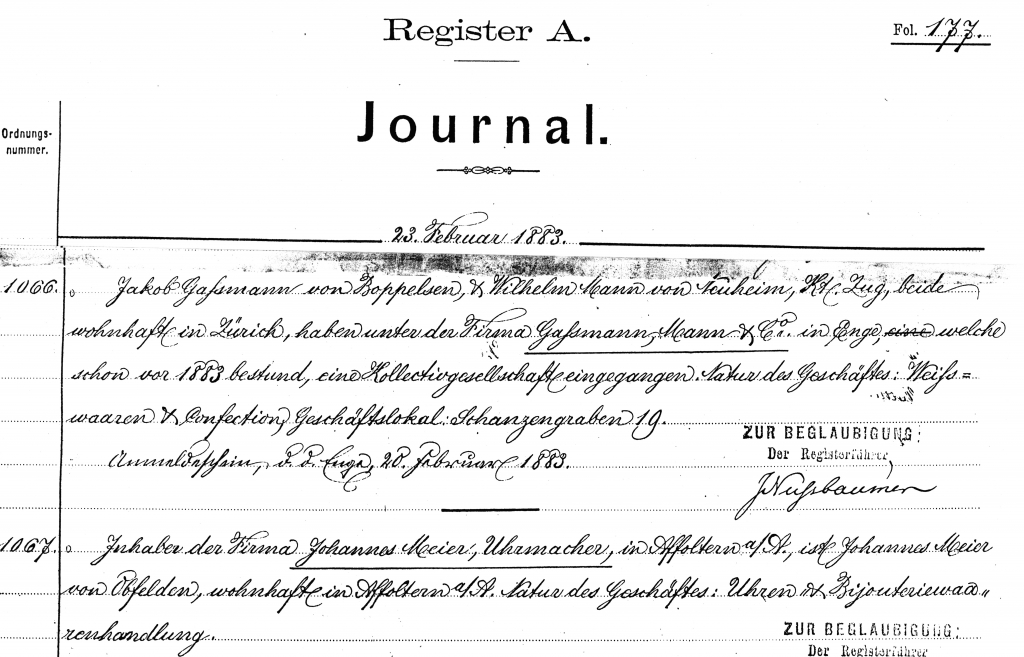 Register A.
Fol. 177.
Journal.
Ordnungs-
nummer.
23. Februar 1883.
1066. Jakob Gaßmann von Boppelsen, & Wilhelm Mann von Neuheim, Kt. Zug, beide
wohnhaft in Zürich, haben unter der Firma Gaßmann, Mann & Co. in Enge, eine welche
schon vor 1883 bestund, eine Kollectivgesellschaft eingegangen. Natur des Geschäftes: Weiß=
waaren & Confection, Geschäftslokal: Schanzengraben 19.
Anmeldeschein, d. d. Enge, 20. Februar 1883.
ZUR BEGLAUBIGUNG:
Der Registerführer,
J Nußbaumer
1067. Inhaber der Firma Johannes Meier, Uhrmacher, in Affoltern a/A., ist Johannes Meier
von Obfelden, wohnhaft in Affoltern a/A. Natur des Geschäftes: Uhren & Bijouteriewaa„
renhandlung.
ZUR BEGLAUBIGUNG:
Der Registerführer